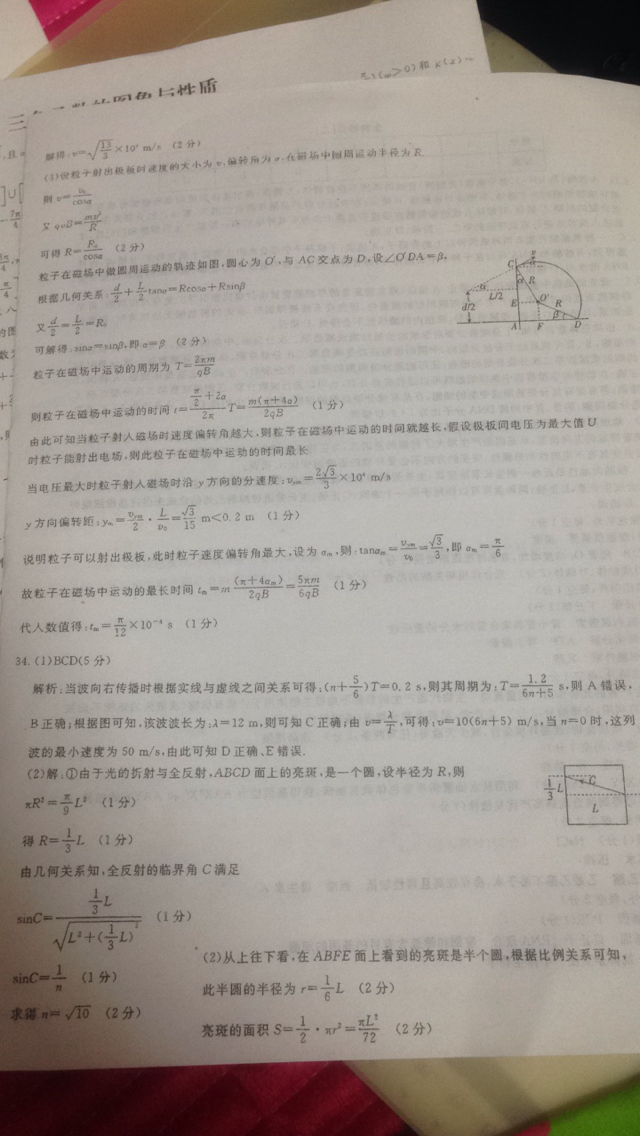 解得:v=√(13/3)×10⁴ m/s (2分)
(3)设粒子射出极板时速度的大小为v,偏转角为α,在磁场中圆周运动半径为R
则 v=v₀/cosα
又 qvB=mv²/R
可得 R=R₀/cosα (2分)
粒子在磁场中做圆周运动的轨迹如图,圆心为O′,与AC交点为D,设∠O′DA=β,
根据几何关系:d/2+L/2 tanα=Rcosα+Rsinβ
又 d/2=L/2=R₀
可解得:sinα=sinβ,即α=β (2分)
粒子在磁场中运动的周期为 T=2πm/qB
则粒子在磁场中运动的时间 t=(π/2+2α)/2π T=m(π+4α)/2qB (1分)
由此可知当粒子射入磁场时速度偏转角越大,则粒子在磁场中运动的时间就越长,假设极板间电压为最大值U
时粒子能射出电场,则此粒子在磁场中运动的时间最长
当电压最大时粒子射入磁场时沿y方向的分速度:vym=2√3/3×10⁴ m/s
y方向偏转距:ym=vym/2·L/v₀=√3/15 m<0.2 m (1分)
说明粒子可以射出极板,此时粒子速度偏转角最大,设为αm,则:tanαm=vym/v₀=√3/3,即αm=π/6
故粒子在磁场中运动的最长时间 tm=m(π+4αm)/2qB=5πm/6qB (1分)
代入数值得:tm=π/12×10⁻⁴ s (1分)
34.(1)BCD(5分)
解析:当波向右传播时根据实线与虚线之间关系可得:(n+5/6)T=0.2 s,则其周期为:T=1.2/(6n+5) s,则A错误,
B正确;根据图可知,该波波长为:λ=12 m,则可知C正确;由v=λ/T,可得:v=10(6n+5) m/s,当n=0时,这列
波的最小速度为50 m/s,由此可知D正确、E错误.
(2)解:①由于光的折射与全反射,ABCD面上的亮斑,是一个圆,设半径为R,则
πR²=π/9 L² (1分)
得 R=1/3 L (1分)
由几何关系知,全反射的临界角C满足
sinC=(1/3 L)/√(L²+(1/3 L)²) (1分)
sinC=1/n (1分)
求得n=√10 (2分)
(2)从上往下看,在ABFE面上看到的亮斑是半个圆,根据比例关系可知,
此半圆的半径为 r=1/6 L (2分)
亮斑的面积 S=1/2·πr²=πL²/72 (2分)
C
R
L/2
d/2
E
O′
R
β
A
F
D
1/3 L
C
L